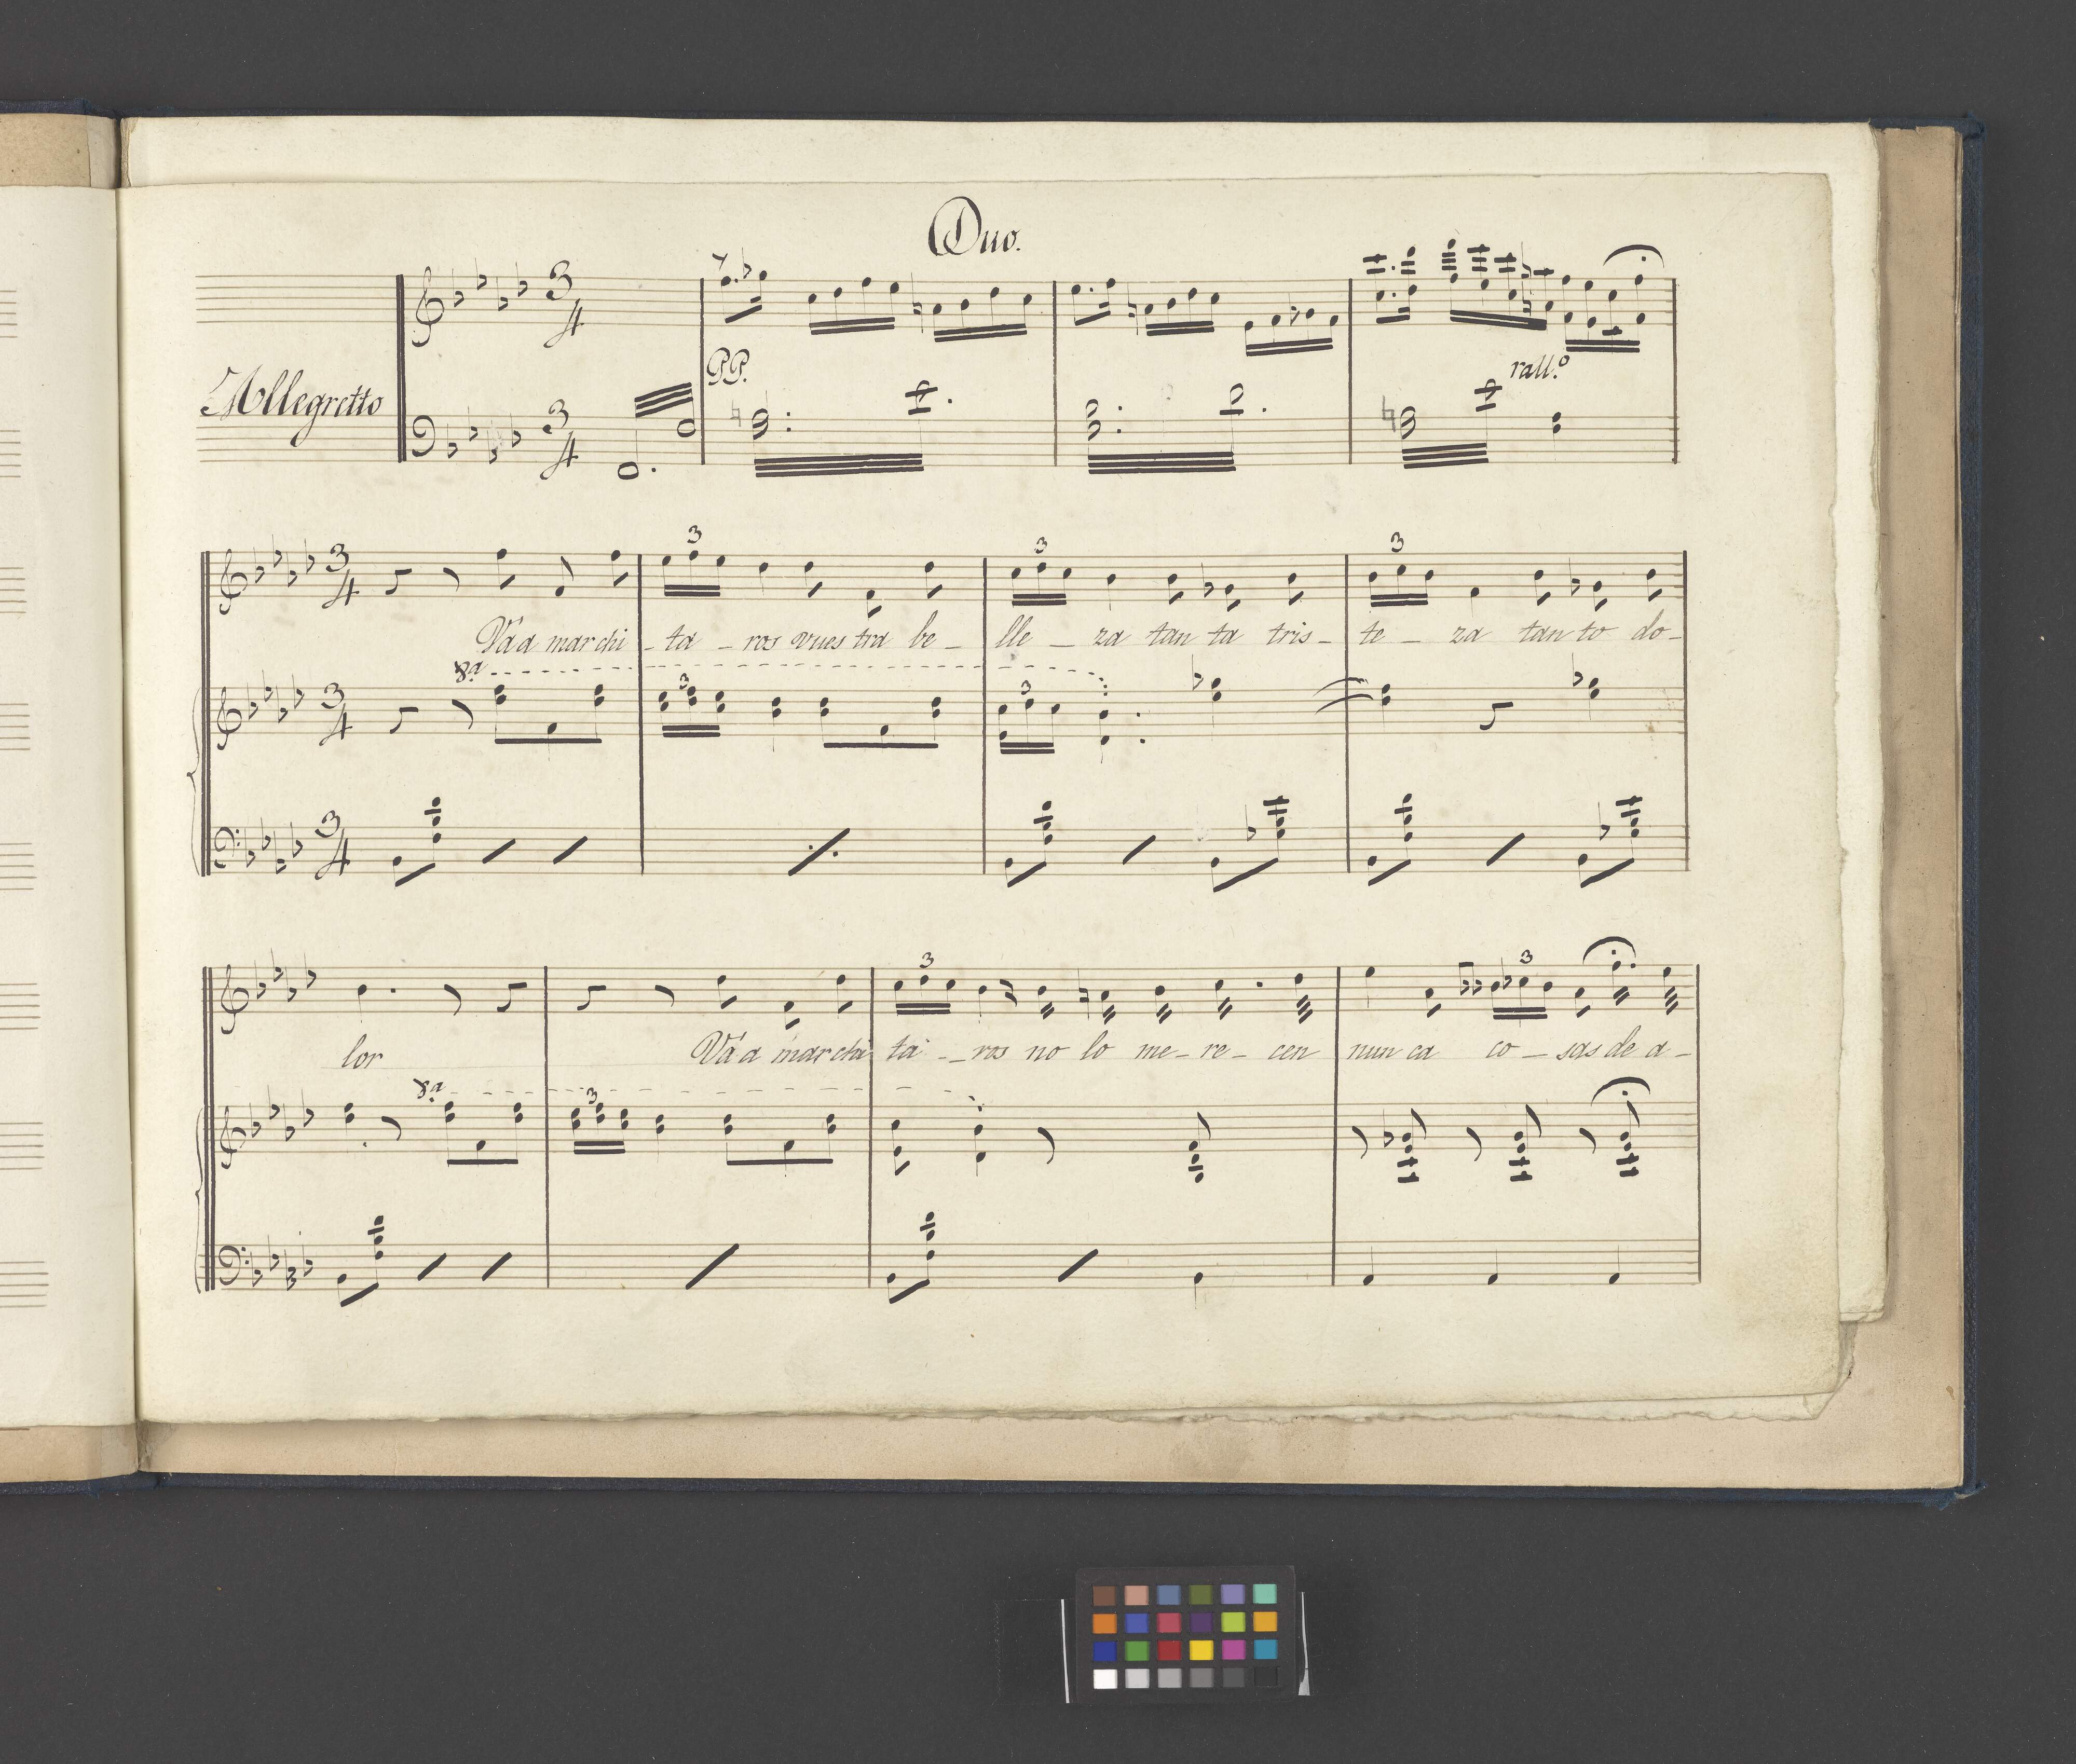 Duo.
Allegretto
3 4
PP.
rall.º
3 4
3 3 3
Vá a mar chi _ ta _ ros vues tra be _ lle _ za tan ta tris _ te _ za tan to do _
8ª
3 3
3 4
3 4
3 3
lor Vá a mar chi ta _ _ ros no lo me _ re _ cen nun ca co _ sas de a _
8ª
3